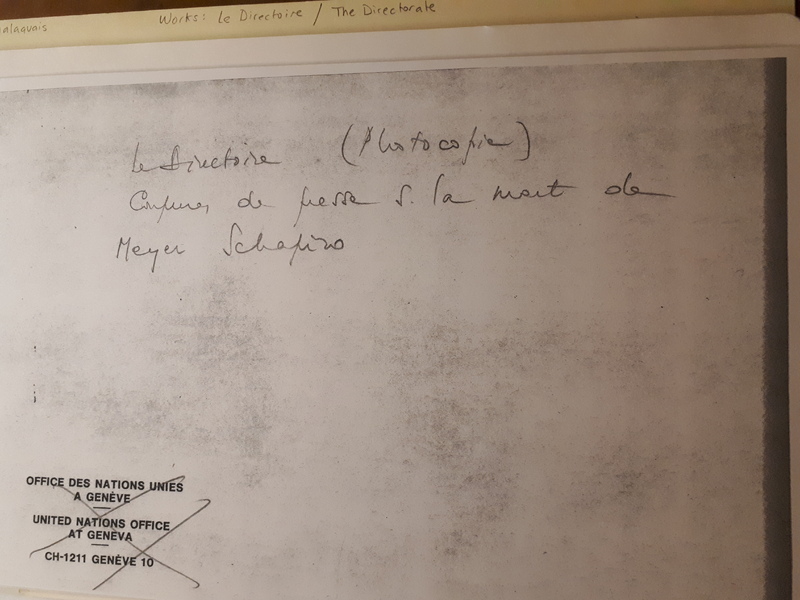 alaquais
Works: Le Directoire / The Directorate
Le Directoire (Photocopie)
Coupures de presse s. la mort de
Meyer Schapiro
OFFICE DES NATIONS UNIES
A GENÈVE
UNITED NATIONS OFFICE
AT GENEVA
CH-1211 GENÈVE 10